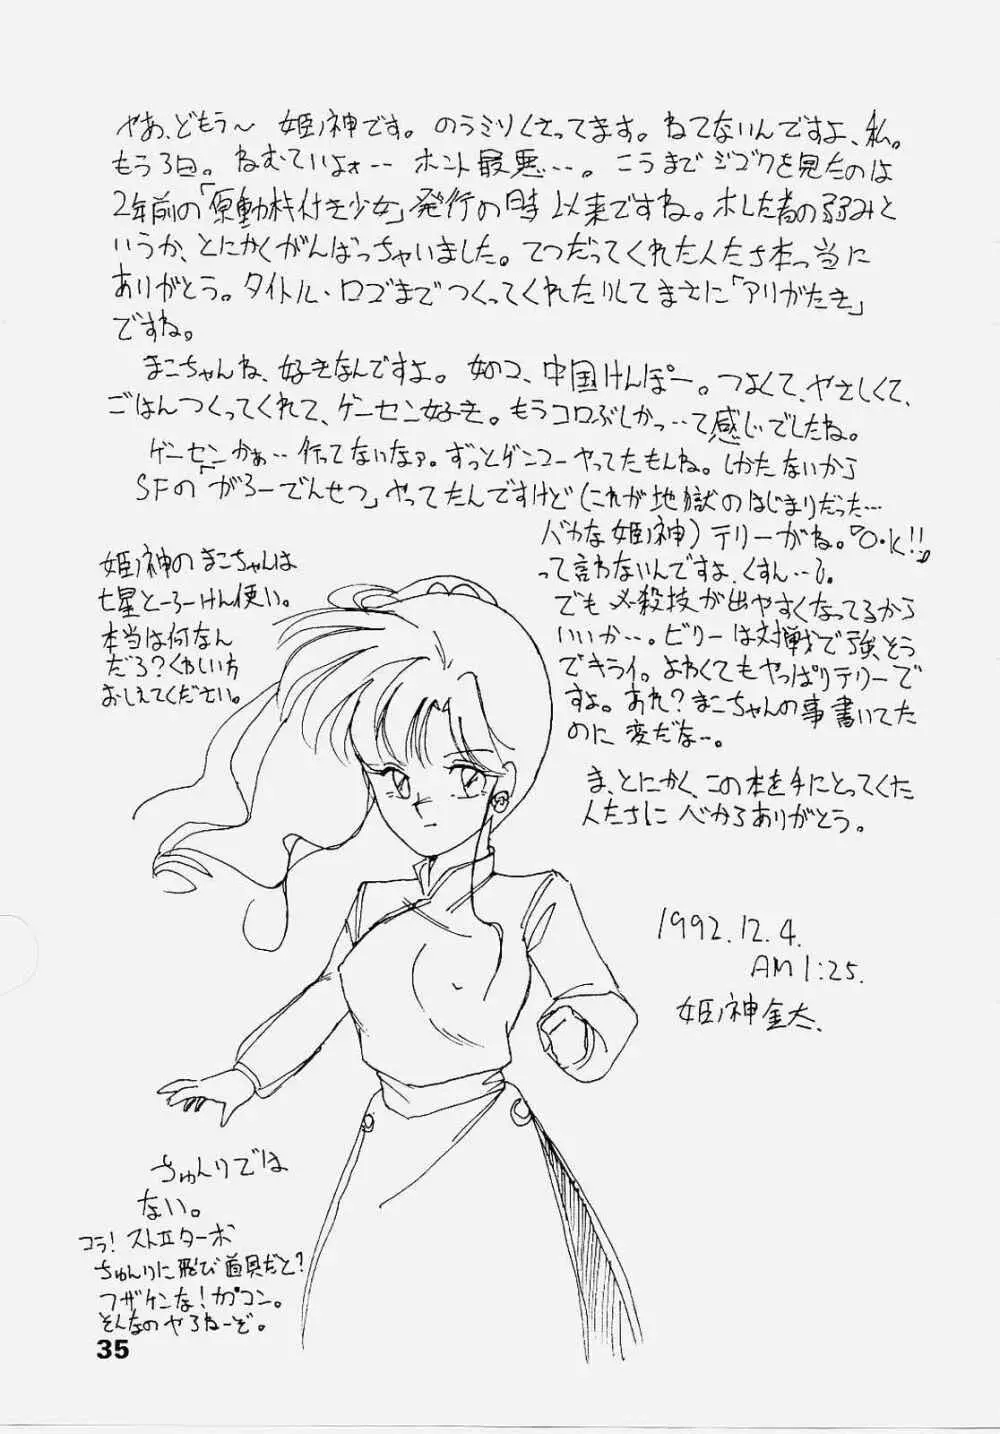 やあ、どもう〜 姫ノ神です。のうミソくさってます。ねてないんですよ、私。
もう3日。ねむていよォ… ホント最悪…。こうまでジゴクを見たのは
2年前の「原動机付き少女」発行の時以来ですね。ホレた者の弱みと
いうか、とにかくがんばっちゃいました。てつだってくれた人たち本っ当に
ありがとう。タイトル・ロゴまでつくってくれたりしてまさに「アリがたき」
ですね。
まこちゃんね、好きなんですよ。女のコ、中国けんぽー。つよくて、やさしくて、
ごはんつくってくれて、ゲーセン好き。もうコロぶしかっ…て感じでしたね。
ゲーセンかぁ…行ってないなァ。ずっとゲンコーやってたもんね。しかたないから
SFの「がろーでんせつ」やってたんですけど(これが地獄のはじまりだった…
バカな姫ノ神)テリーがね。『O・K!!』
って言わないんですよ、くすん…。
でも必殺技が出やすくなってるから
いいか…。ビリーは対戦で強そう
でキライ。よわくてもやっぱりテリーで
すよ。あれ?まこちゃんの事書いてた
のに変だな…。
ま、とにかく、この本を手にとってくた
人たちに心からありがとう。
1992.12.4.
AM1:25.
姫ノ神金太.
姫ノ神のまこちゃんは
七星とーろーけん使い。
本当は何なん
だろ?くわしい方
おしえてください。
ちゅんりでは
ない。
コラ!ストIIターボ
ちゅんりに飛び道具だと?
フザケンな!カプコン。
そんなのやろねーぞ。
35